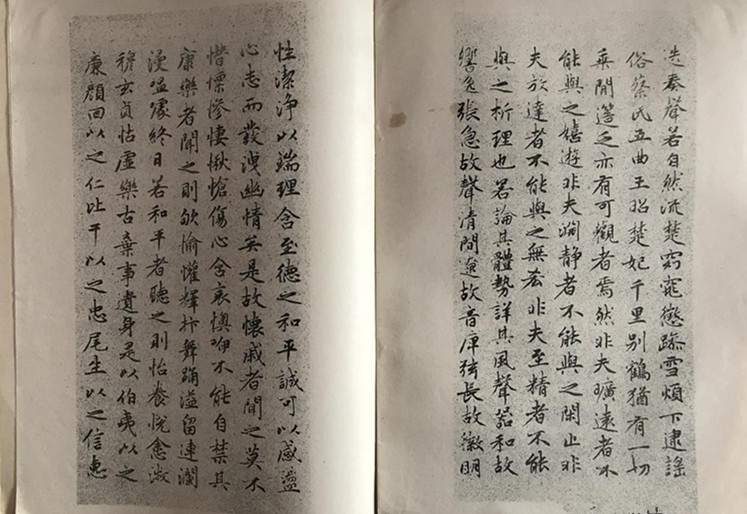 造奏聲若自然流楚窈窕懲躁雪煩下逮謠
俗蔡氏五曲王昭楚妃千里别鶴猶有一切
承間簉乏亦有可觀者焉然非夫曠遠者不
能與之嬉遊非夫淵静者不能與之閑止非
夫放達者不能與之無吝非夫至精者不能
與之析理也若論其體勢詳其風聲器和故
響逸張急故聲清間遼故音庳弦長故徽明
性潔浄以端理含至德之和平誠可以感盪
心志而發洩幽情矣是故懷戚者聞之莫不
憯懍慘悽愀愴傷心含哀懊咿不能自禁其
康樂者聞之則欨愉懽釋抃舞踊溢留連瀾
漫嗢噱終日若和平者聽之則怡養悅悆淑
穆玄貞恬虛樂古棄事遺身是以伯夷以之
廉顏回以之仁比干以之忠尾生以之信惠